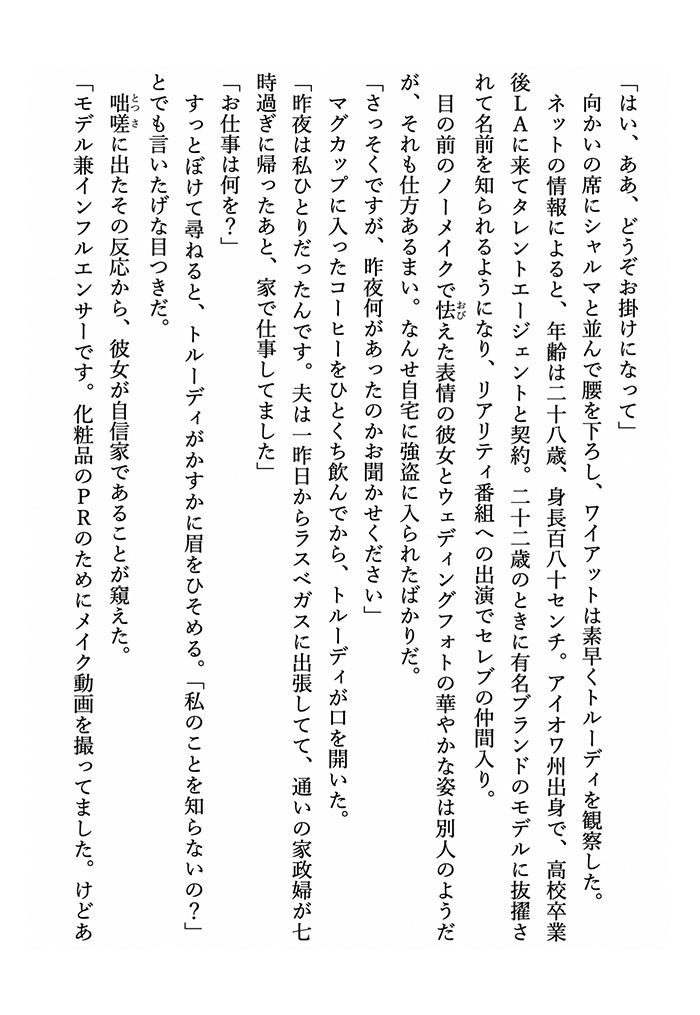 「はい、ああ、どうぞお掛けになって」
　向かいの席にシャルマと並んで腰を下ろし、ワイアットは素早くトルーディを観察した。
　ネットの情報によると、年齢は二十八歳、身長百八十センチ。アイオワ州出身で、高校卒業
後ＬＡに来てタレントエージェントと契約。二十二歳のときに有名ブランドのモデルに抜擢さ
れて名前を知られるようになり、リアリティ番組への出演でセレブの仲間入り。
　目の前のノーメイクで怯えた表情の彼女とウェディングフォトの華やかな姿は別人のようだ
が、それも仕方あるまい。なんせ自宅に強盗に入られたばかりだ。
「さっそくですが、昨夜何があったのかお聞かせください」
　マグカップに入ったコーヒーをひとくち飲んでから、トルーディが口を開いた。
「昨夜は私ひとりだったんです。夫は一昨日からラスベガスに出張してて、通いの家政婦が七
時過ぎに帰ったあと、家で仕事してました」
「お仕事は何を？」
　すっとぼけて尋ねると、トルーディがかすかに眉をひそめる。「私のことを知らないの？」
とでも言いたげな目つきだ。
　咄嗟に出たその反応から、彼女が自信家であることが窺えた。
「モデル兼インフルエンサーです。化粧品のＰＲのためにメイク動画を撮ってました。けどあ